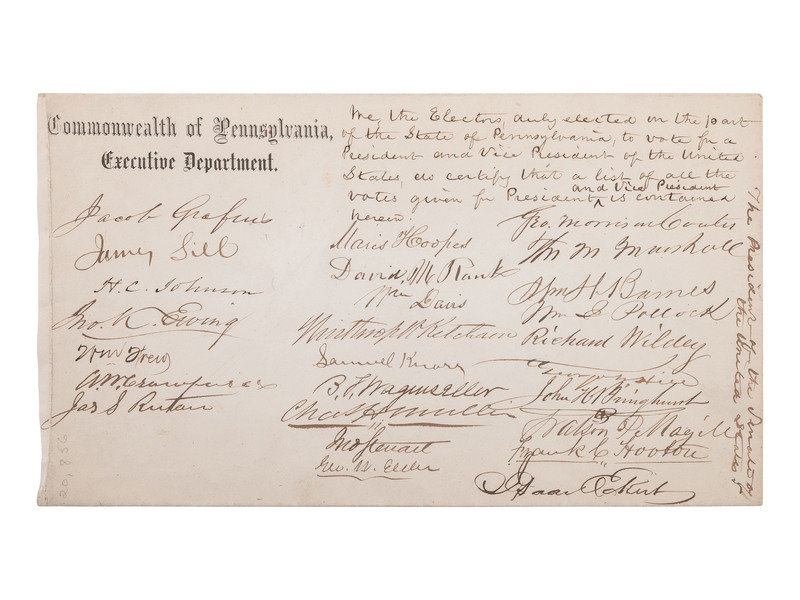 Commonwealth of Pennsylvania,
Executive Department.
We, the Electors duly elected on the part
of the State of Pennsylvania, to vote for a
President and Vice President of the United
States, do certify that a list of all the
and Vice President
votes given for President ^ is contained
herein.
Jacob Grafius
James Sill
H. C. Johnson
Jno. K. Ewing
Wm Frew
A. W. Crawford
Jas S Rutan
Maris Hoopes
David M Rank
Wm Davis
Winthrop W Ketcham
Samuel Knorr
B. F. Wagenseller
Chas H Mullin
Jno Stewart
Geo. W. Elder
Geo. Morrison Coates
Th. M. Marshall
Wm H Barnes
Wm J. Pollock
Richard Wildey
John H Bringhurst
Watson P. Magill
Frank C Hooton
Isaac Eckert
The President of the Senate of
the United States
20,856